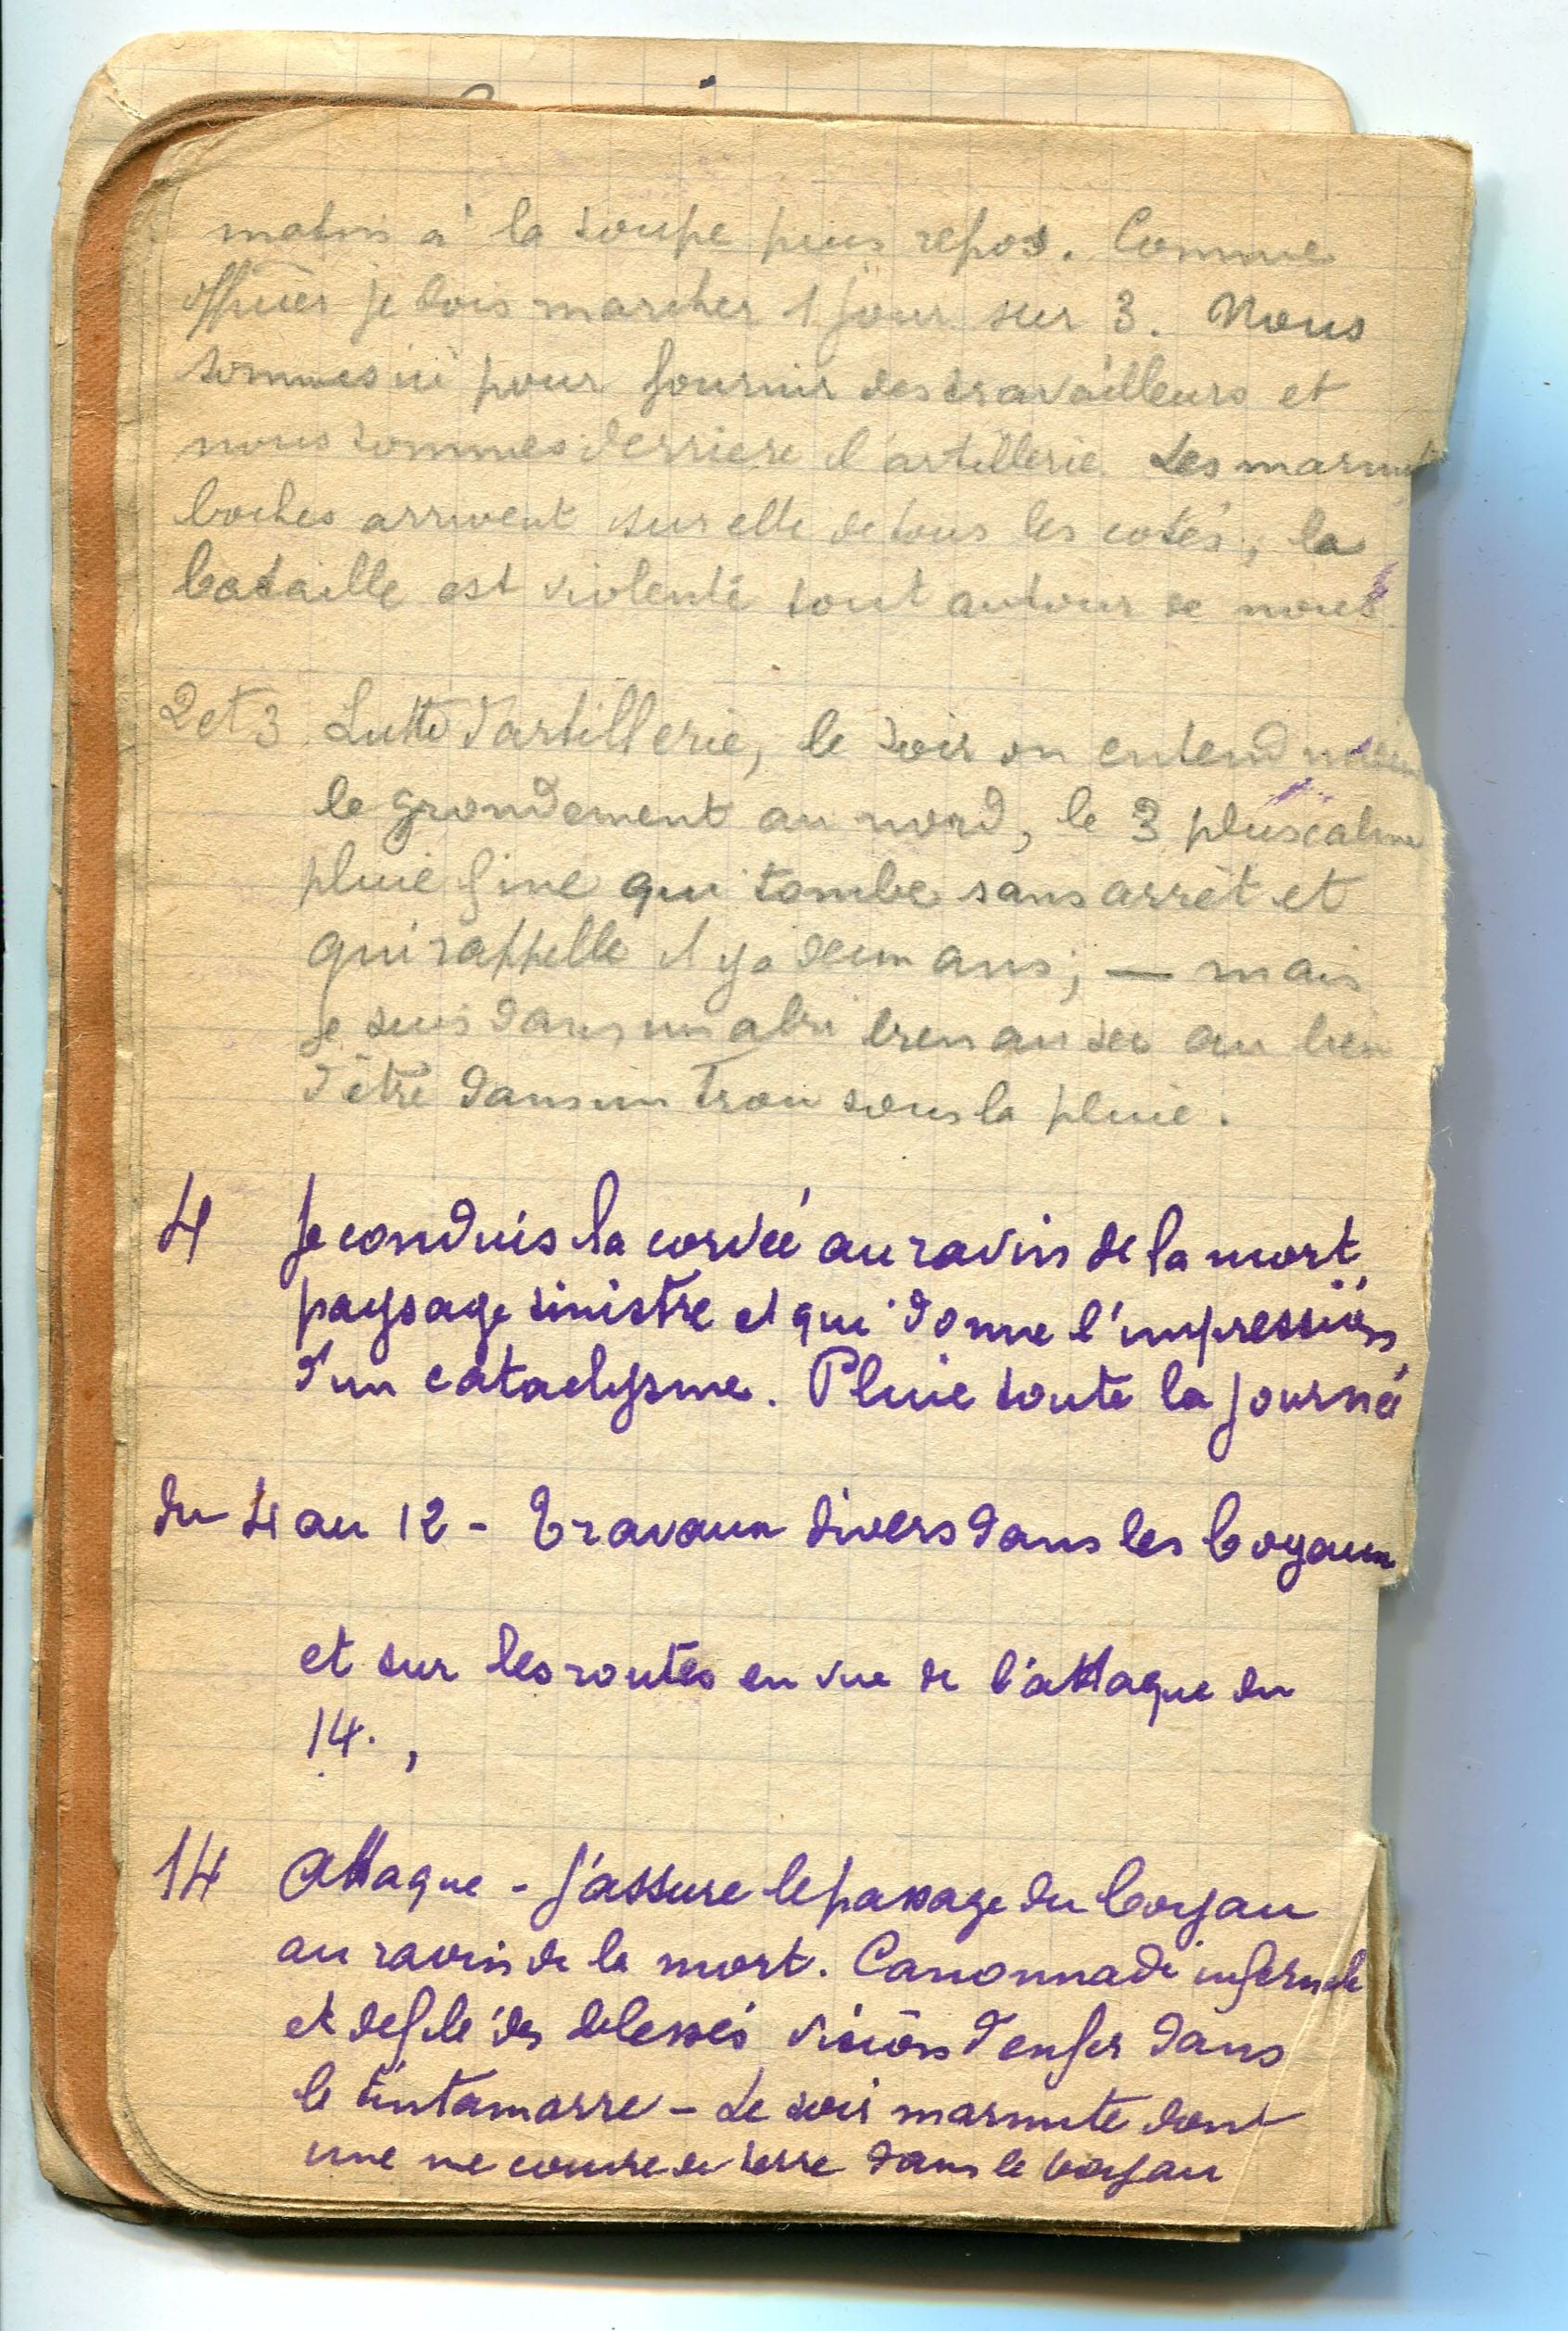 matin à la soupe puis repos. Comme
officier je dois marcher 1 jour sur 3. Nous
sommes ici pour fournir des travailleurs et
nous sommes derriere l'artillerie. Les
boches arrivent sur elle de tous les cotés, la
bataille est violente tout autour de nous.
2 et 3 Lutte d'artillerie, le soir on entend
le grondement au nord, le 3 plus calme
pluie fine qui tombe sans arrêt et
qui rappelle il y a deux ans; — mais
je suis dans un abri bien au sec au lieu
d'être dans un trou sous la pluie.
4 Je conduis la corvée au ravin de la mort,
paysage sinistre et qui donne l'impression
d'un cataclysme. Pluie toute la journée
du 4 au 12 - Travaux divers dans les boyaux
et sur les routes en vue de l'attaque du
14.,
14 Attaque - J'assure le passage du boyau
au ravin de la mort. Canonnade infernale
et defilé des blessés vision d'enfer dans
le tintamarre - Le soir marmite dont
une me couvre de terre dans le boyau